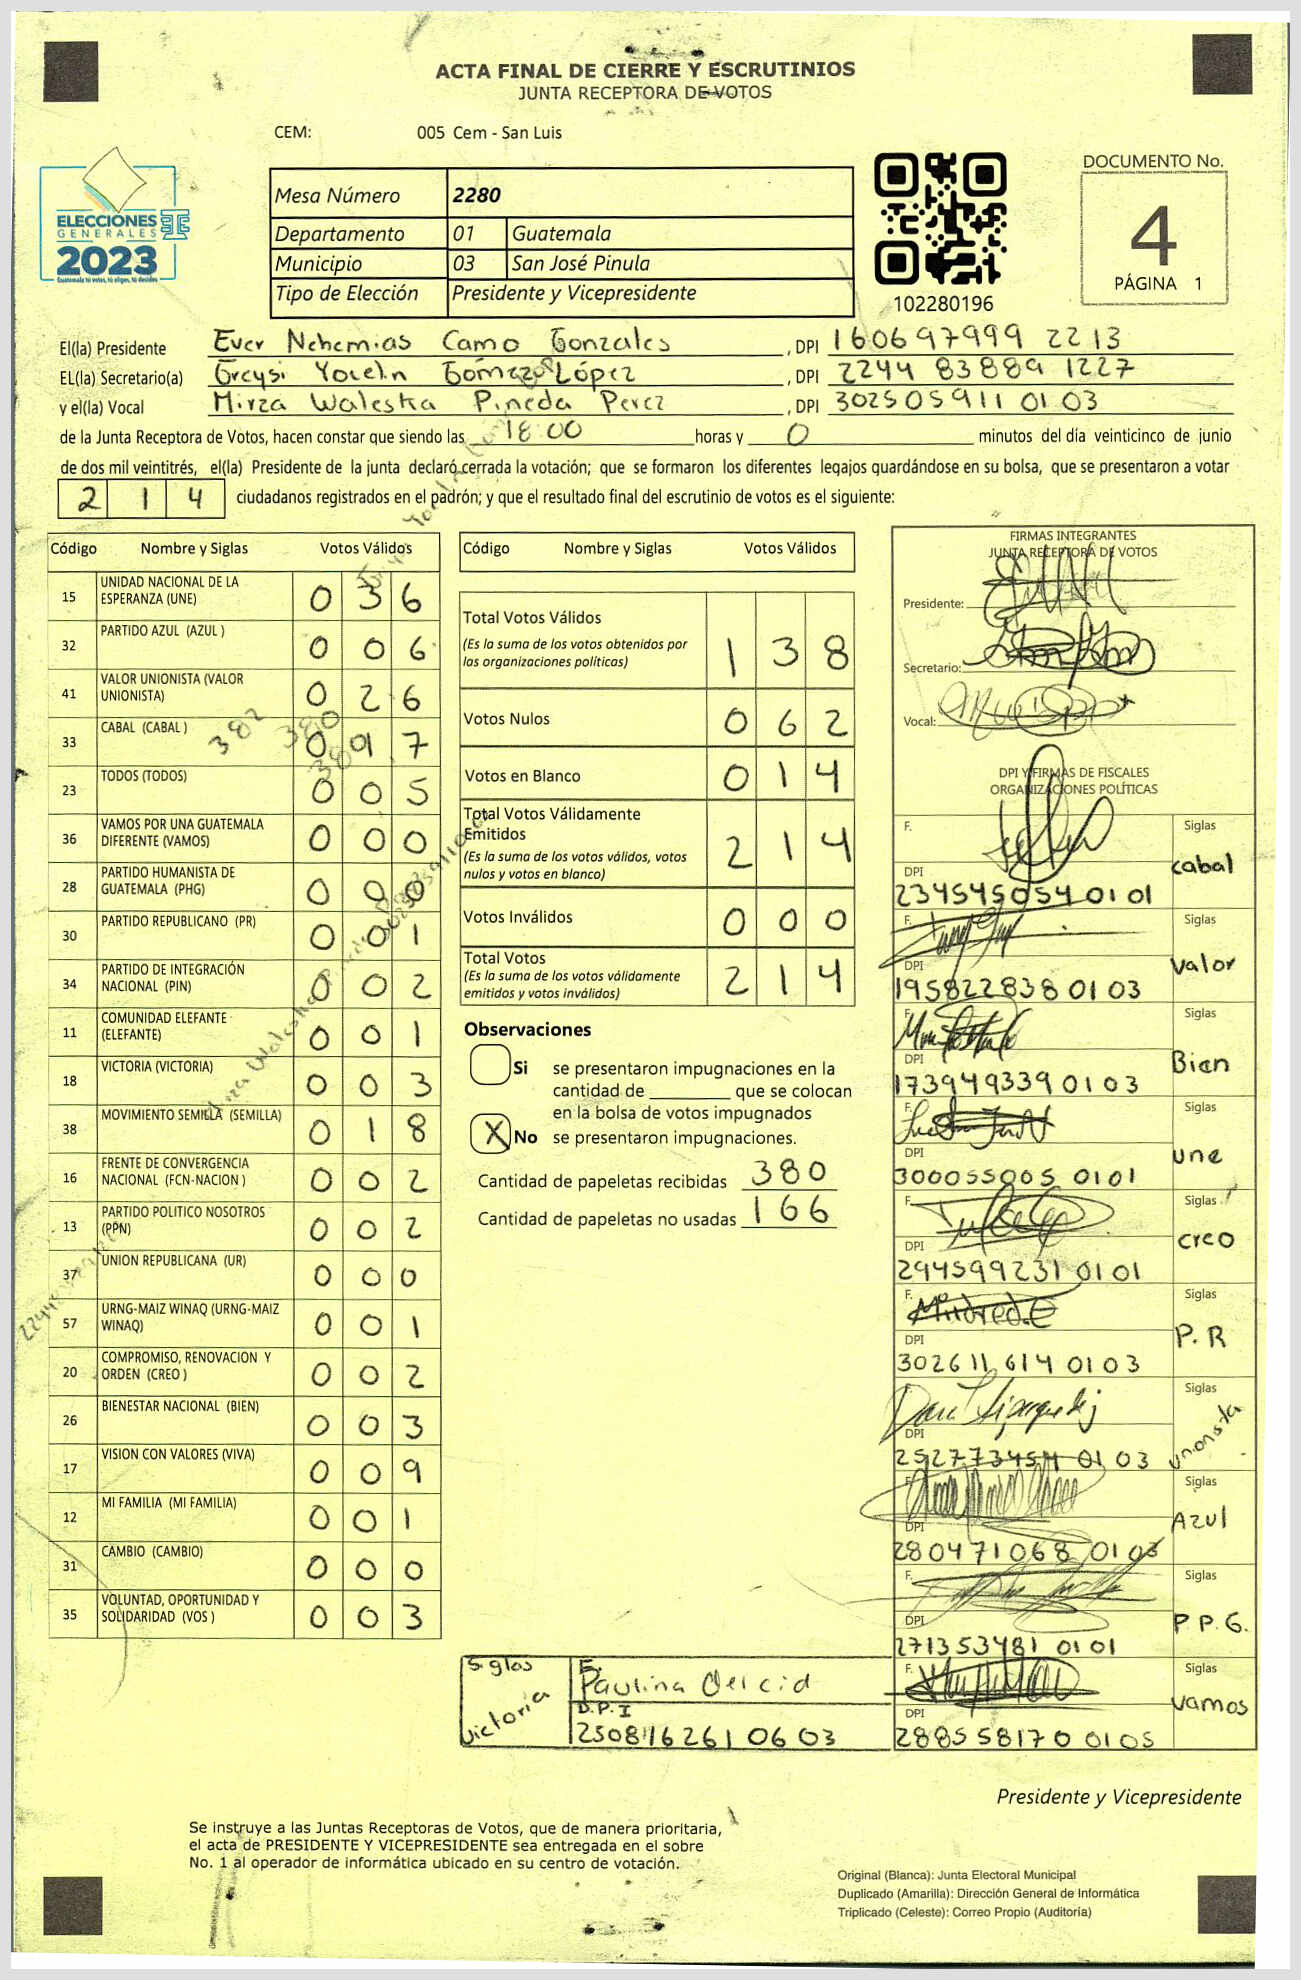 ACTA FINAL DE CIERRE Y ESCRUTINIOS
JUNTA RECEPTORA DE VOTOS
CEM: 005 Cem - San Luis
ELECCIONES
GENERALES
2023
Guatemala tú votas, tú eliges, tú decides
Mesa Número 2280
Departamento 01 Guatemala
Municipio 03 San José Pinula
Tipo de Elección Presidente y Vicepresidente
102280196
DOCUMENTO No.
4
PÁGINA 1
El(la) Presidente Ever Nehemias Camo Gonzales , DPI 160697999 2213
EL(la) Secretario(a) Greysi Yocelin Gómez López , DPI 2244 83889 1227
y el(la) Vocal Mirza Waleska Pineda Perez , DPI 302505911 0103
de la Junta Receptora de Votos, hacen constar que siendo las 18:00 horas y 0 minutos del día veinticinco de junio
de dos mil veintitrés, el(la) Presidente de la junta declaró cerrada la votación; que se formaron los diferentes legajos guardándose en su bolsa, que se presentaron a votar
2 1 4 ciudadanos registrados en el padrón; y que el resultado final del escrutinio de votos es el siguiente:
Código Nombre y Siglas Votos Válidos
15 UNIDAD NACIONAL DE LA ESPERANZA (UNE) 0 3 6
32 PARTIDO AZUL (AZUL ) 0 0 6
41 VALOR UNIONISTA (VALOR UNIONISTA) 0 2 6
33 CABAL (CABAL ) 0 9 7
382
380
380
23 TODOS (TODOS) 0 0 5
36 VAMOS POR UNA GUATEMALA DIFERENTE (VAMOS) 0 0 0
28 PARTIDO HUMANISTA DE GUATEMALA (PHG) 0 0 0
30 PARTIDO REPUBLICANO (PR) 0 0 1
34 PARTIDO DE INTEGRACIÓN NACIONAL (PIN) 0 0 2
11 COMUNIDAD ELEFANTE (ELEFANTE) 0 0 1
18 VICTORIA (VICTORIA) 0 0 3
38 MOVIMIENTO SEMILLA (SEMILLA) 0 1 8
16 FRENTE DE CONVERGENCIA NACIONAL (FCN-NACION ) 0 0 2
13 PARTIDO POLITICO NOSOTROS (PPN) 0 0 2
37 UNION REPUBLICANA (UR) 0 0 0
57 URNG-MAIZ WINAQ (URNG-MAIZ WINAQ) 0 0 1
20 COMPROMISO, RENOVACION Y ORDEN (CREO ) 0 0 2
26 BIENESTAR NACIONAL (BIEN) 0 0 3
17 VISION CON VALORES (VIVA) 0 0 9
12 MI FAMILIA (MI FAMILIA) 0 0 1
31 CAMBIO (CAMBIO) 0 0 0
35 VOLUNTAD, OPORTUNIDAD Y SOLIDARIDAD (VOS ) 0 0 3
Código Nombre y Siglas Votos Válidos
Total Votos Válidos
(Es la suma de los votos obtenidos por las organizaciones políticas) 1 3 8
Votos Nulos 0 6 2
Votos en Blanco 0 1 4
Total Votos Válidamente Emitidos
(Es la suma de los votos válidos, votos nulos y votos en blanco) 2 1 4
Votos Inválidos 0 0 0
Total Votos
(Es la suma de los votos válidamente emitidos y votos inválidos) 2 1 4
Observaciones
Si se presentaron impugnaciones en la
cantidad de ________ que se colocan
en la bolsa de votos impugnados
X No se presentaron impugnaciones.
Cantidad de papeletas recibidas 380
Cantidad de papeletas no usadas 166
FIRMAS INTEGRANTES
JUNTA RECEPTORA DE VOTOS
Presidente:
Secretario:
Vocal:
DPI Y FIRMAS DE FISCALES
ORGANIZACIONES POLÍTICAS
F. Siglas
cabal
DPI
234545054 0101
F. Siglas
Valor
DPI
195822838 0103
F. Siglas
Bien
DPI
173949339 0103
F. Siglas
une
DPI
300055005 0101
F. Siglas
creo
DPI
294599231 0101
F. Mildred.E Siglas
P.R
DPI
302611614 0103
F. Siglas
unonista
DPI
252773454 0103
F. Siglas
Azul
DPI
280471068 0103
F. Siglas
P.P.G.
DPI
271353481 0101
F. Siglas
Vamos
DPI
288558170 0105
Siglas
Victoria
F.
Paulina Del cid
D.P.I
250816261 0603
Presidente y Vicepresidente
Se instruye a las Juntas Receptoras de Votos, que de manera prioritaria,
el acta de PRESIDENTE Y VICEPRESIDENTE sea entregada en el sobre
No. 1 al operador de informática ubicado en su centro de votación.
Original (Blanca): Junta Electoral Municipal
Duplicado (Amarilla): Dirección General de Informática
Triplicado (Celeste): Correo Propio (Auditoría)